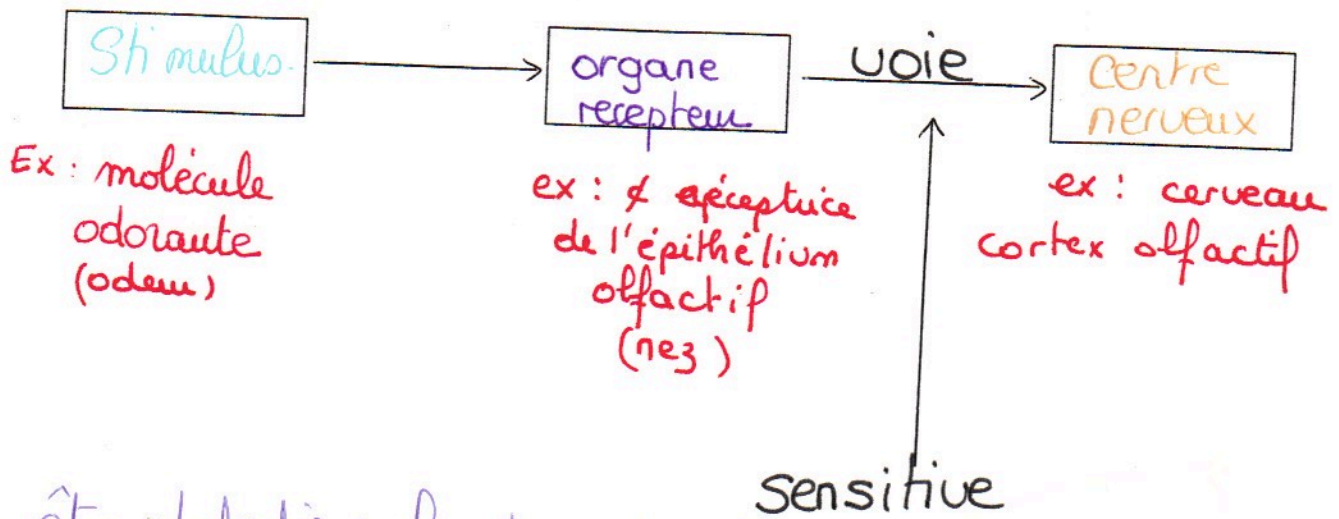 Stimulus.
organe
recepteur
voie
centre
nerveux
Ex : molécule
odorante
(odeur)
ex : ¢ réceptrice
de l'épithélium
olfactif
(nez)
ex : cerveau
cortex olfactif
sensitive